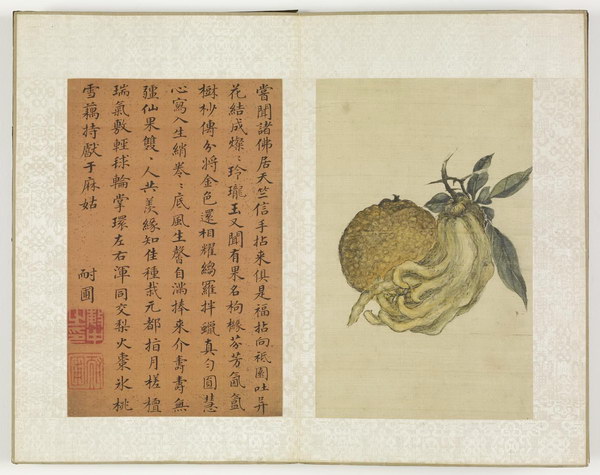 嘗聞諸佛居天竺信手拈來俱是福拈向祗園吐異
花結成燦〻玲瓏玉又聞有果名枸櫞芬芳氤氳
樹杪傳分將金色還相耀縐羅拌蠟真勻圓慧
心寫入生綃卷〻底風生馨自滿捧來介壽壽無
疆仙果雙〻人共羨緣知佳種栽元都指月槎檀
瑞氣敷輕毬輪掌環左右渾同交梨火棗氷桃
雪藕持獻于麻姑
耐圃